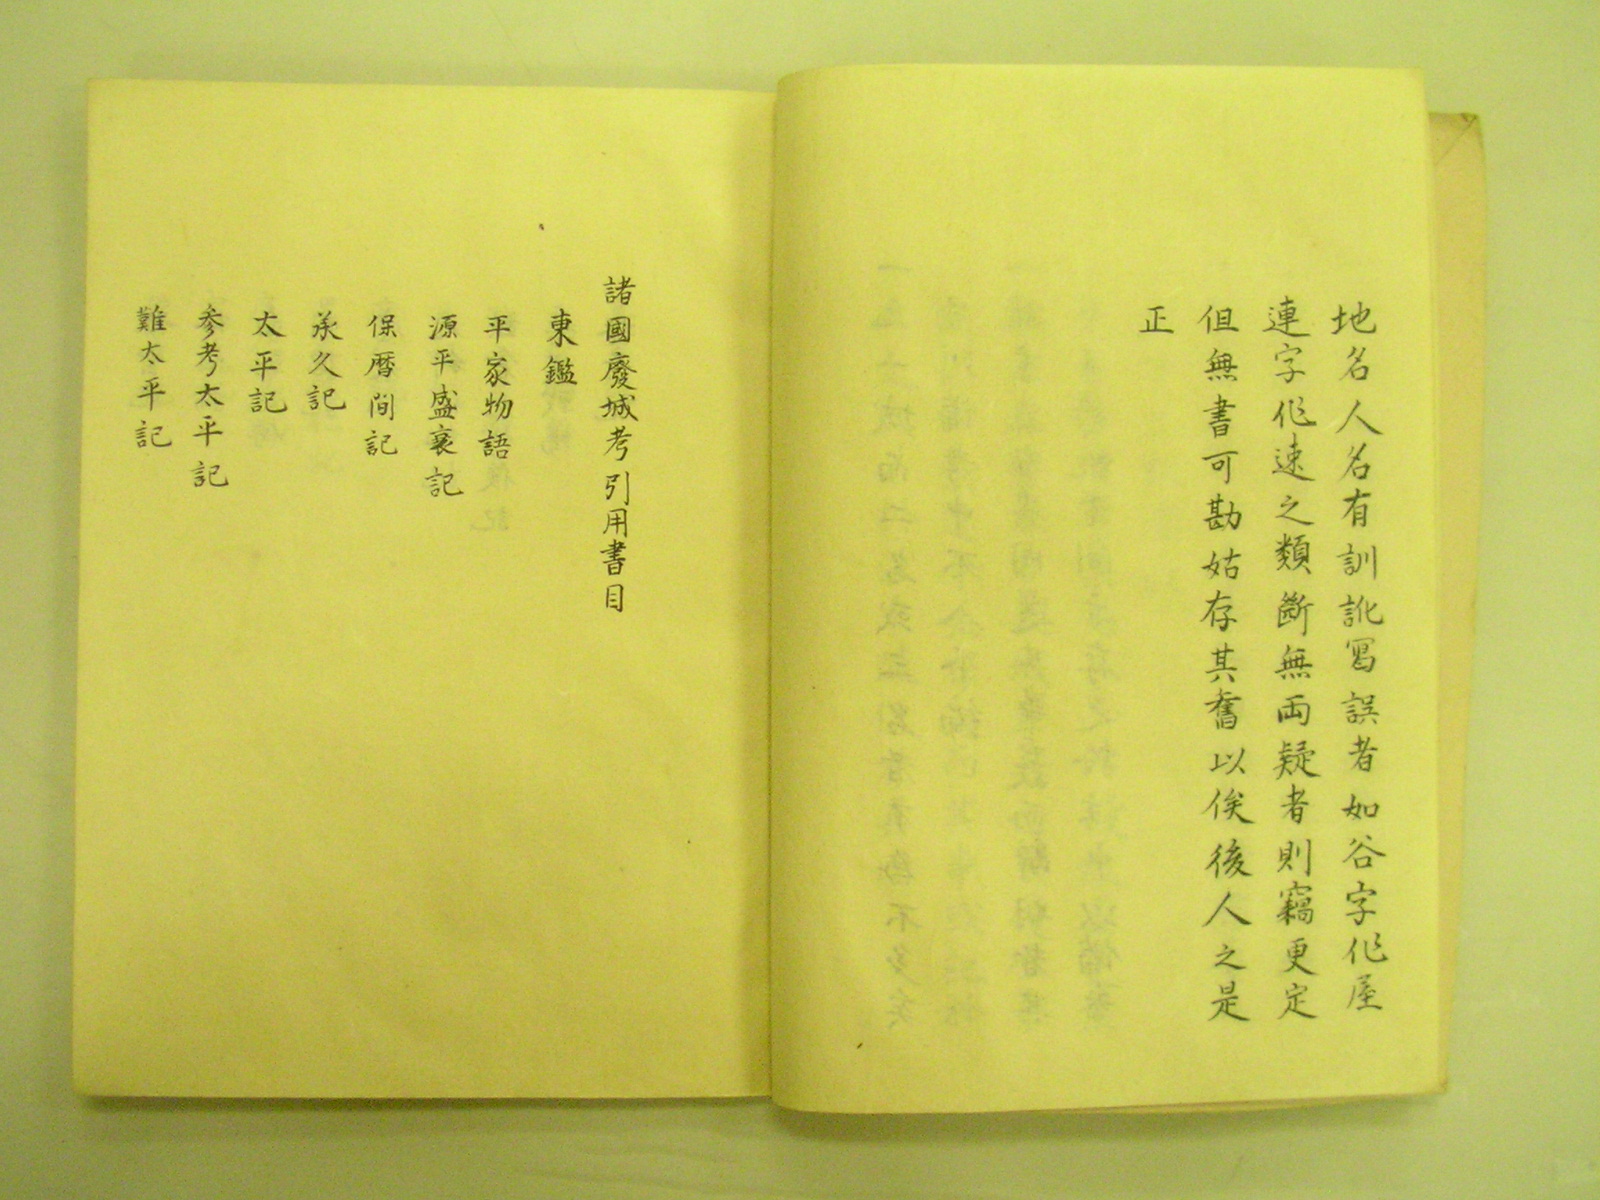 地名人名有訓訛寫誤者如谷字作屋
連字作速之類斷無両疑者則竊更定
但無書可勘姑存其舊以俟後人之是
正
諸國廢城考引用書目
東鑑
平家物語
源平盛衰記
保暦間記
承久記
太平記
参考太平記
難太平記